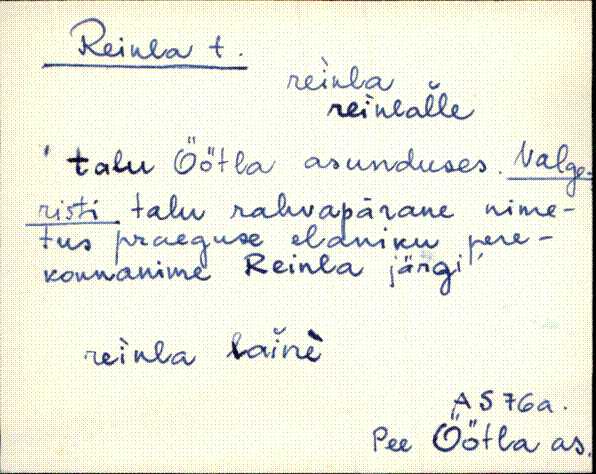 Reinla t.
reìnla
reìnlal̆le
' talu Öötla asunduses. Valge-
risti talu rahvapärane nime-
tus praeguse elaniku pere-
konnanime Reinla järgi '
reìnla
AS 76a.
Pee Öötla as.